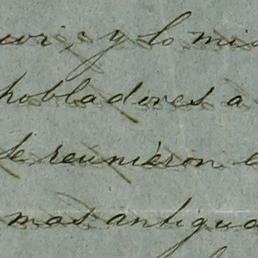 y lo mis
pobladores a
se reunieron e
mas antigua